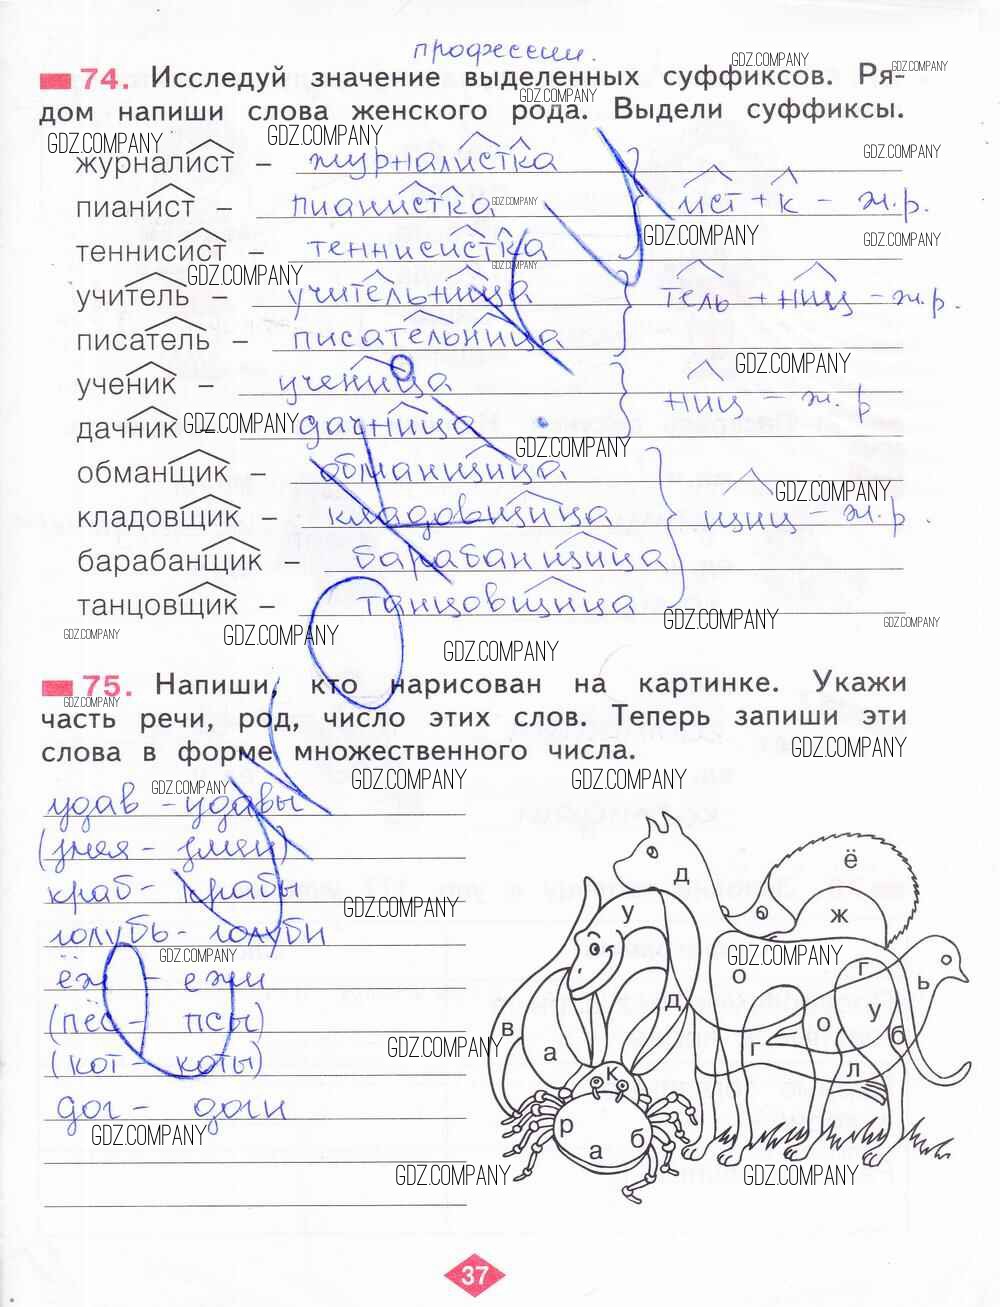 профессии.
74. Исследуй значение выделенных суффиксов. Ря-
дом напиши слова женского рода. Выдели суффиксы.
журналист – журналистка
пианист – пианистка ист + к – ж.р.
теннисист – теннисистка
учитель – учительница тель + ниц – ж.р.
писатель – писательница
ученик – ученица
дачник – дачница ниц – ж.р
обманщик – обманщица
кладовщик – кладовщица щиц – ж.р.
барабанщик – барабанщица
танцовщик – танцовщица
75. Напиши, кто нарисован на картинке. Укажи
часть речи, род, число этих слов. Теперь запиши эти
слова в форме множественного числа.
удав – удавы
(змея – змеи)
краб – крабы
голубь – голуби
ёж – ежи
(пёс – псы)
(кот – коты)
дог – доги
у д а в
к р а б
д о г
ё ж
г о л у б ь
37
GDZ.COMPANY